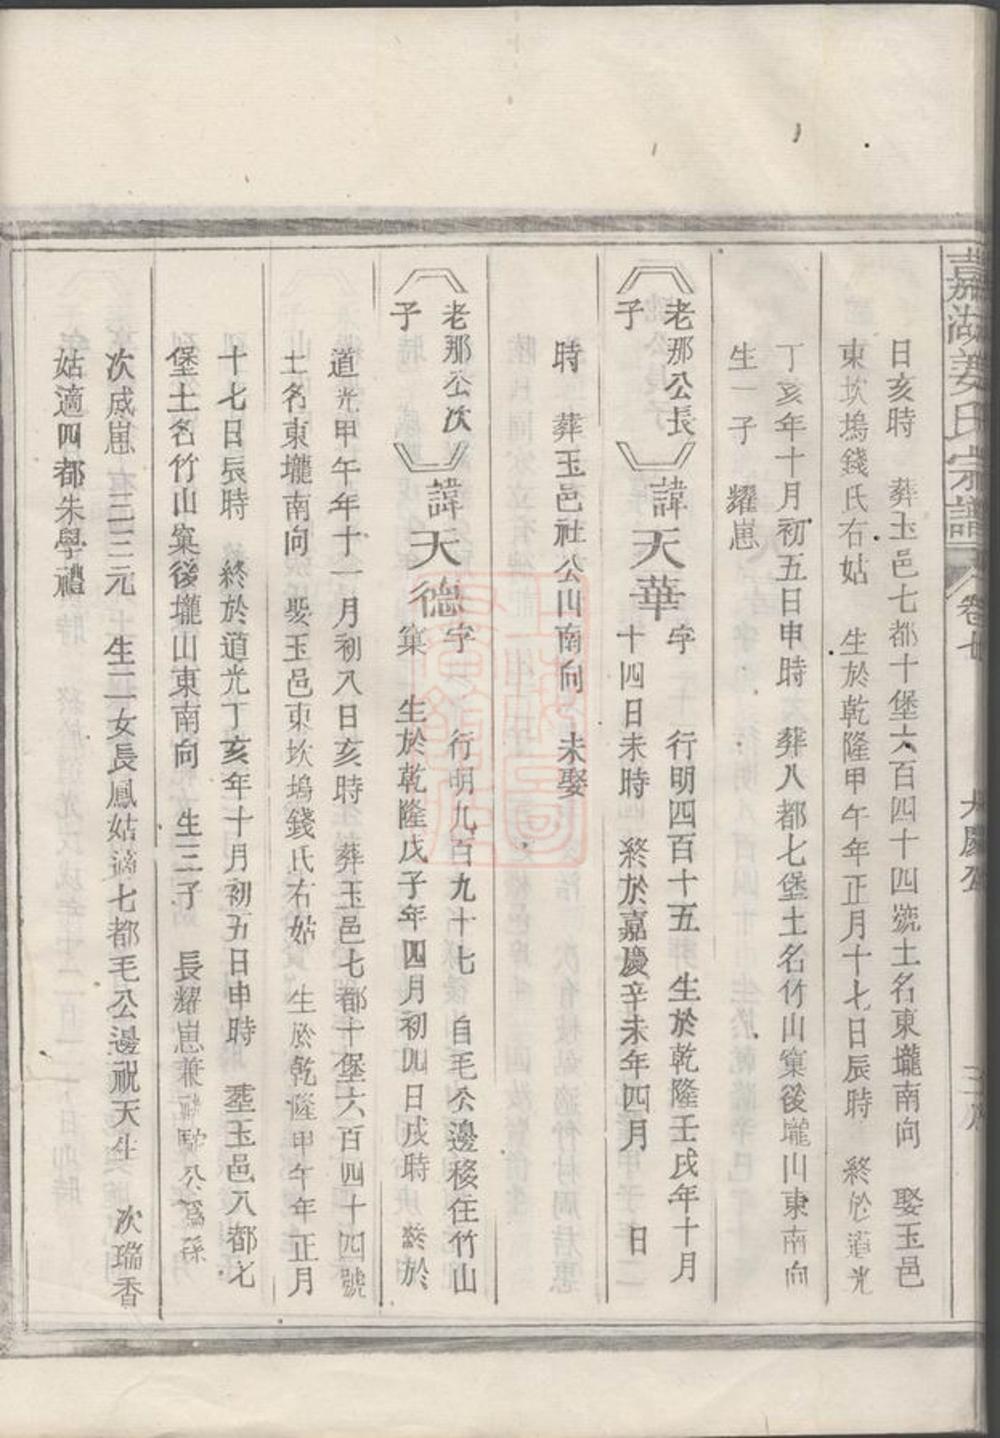 嘉湖姜氏宗譜 卷七
日亥時 葬玉邑七都十堡六百四十四號土名東壠南向 娶玉邑
東坎塢錢氏右姑 生於乾隆甲午年正月十七日辰時 終於道光
丁亥年十月初五日申時 葬八都七堡土名竹山窠後壠山東南向
生一子 耀崽
老那公長
子
諱天華字 行明四百十五 生於乾隆壬戌年十月
十四日未時 終於嘉慶辛未年四月 日
時 葬玉邑社公山南向 未娶
老那公次
子
諱天德字 行明九百九十七 自毛公邊移住竹山
窠 生於乾隆戊子年四月初四日戌時 終於
道光甲午年十一月初八日亥時 葬玉邑七都十堡六百四十四號
土名東壠南向 娶玉邑東坎塢錢氏右姑 生於乾隆甲午年正月
十七日辰時 終於道光丁亥年十月初五日申時 塟玉邑八都七
堡土名竹山窠後壠山東南向 生三子 長耀崽兼 公爲孫
次成崽 三三元 生二女長鳳姑適七都毛公邊祝天生 次瑞香
姑適四都朱學禮